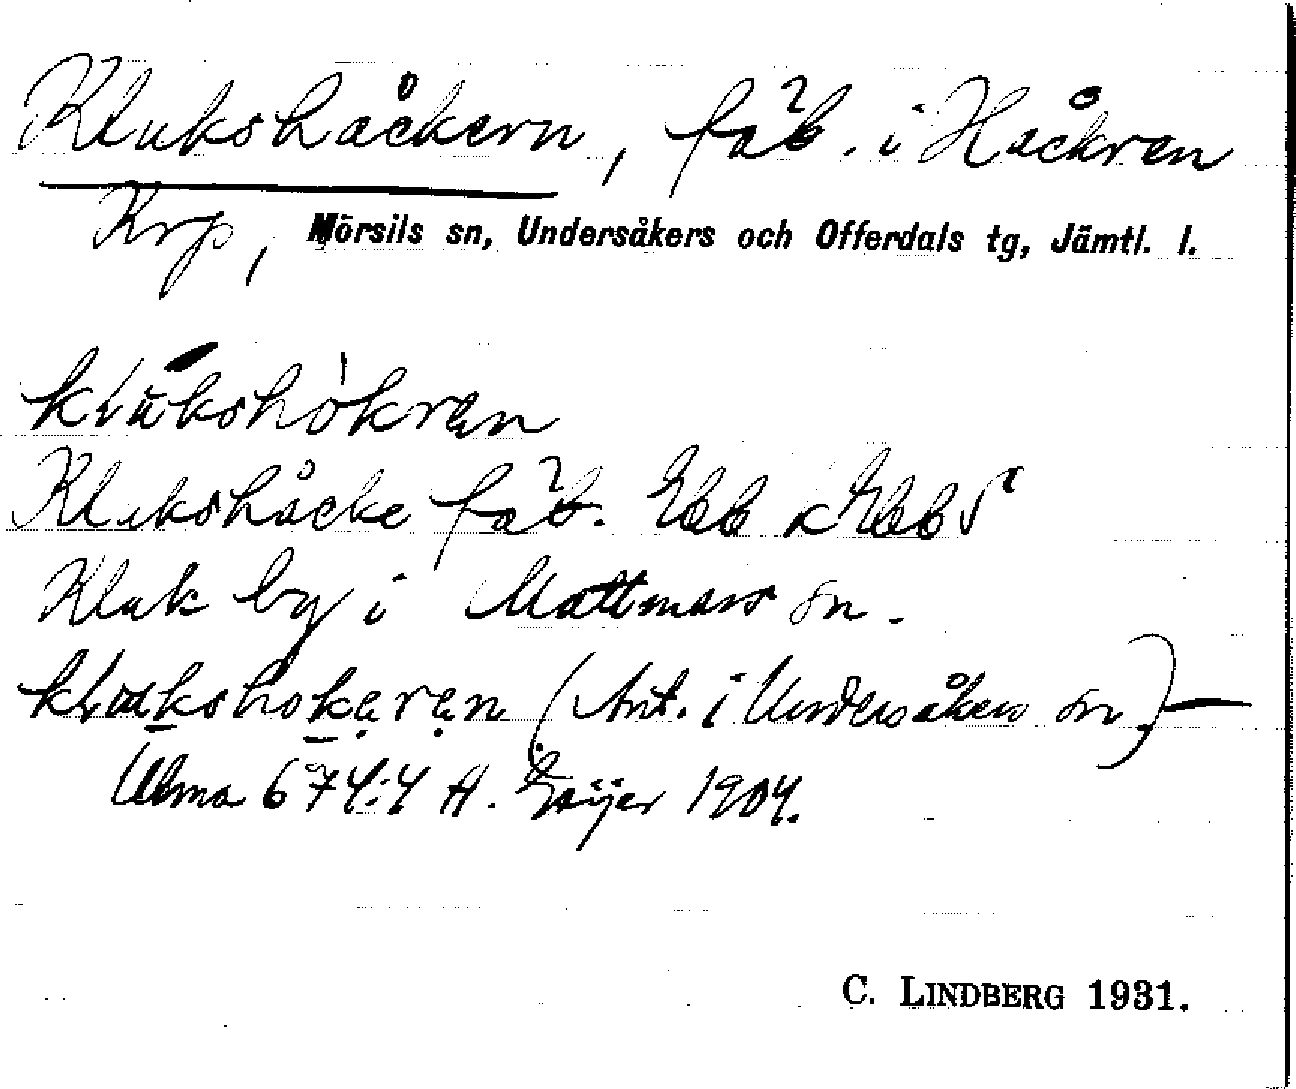 Klukshåckern, fäb. i Håckren
Krp, Mörsils sn, Undersåkers och Offerdals tg, Jämtl. l.
klukshokren
Klukshåcke fäb. Ebb
Kluk by i Mattmars sn.
klukshokeren (Ant. i Undersåkers sn.)—
Ulma 674:4 H. Geijer 1904.
C. LINDBERG 1931.